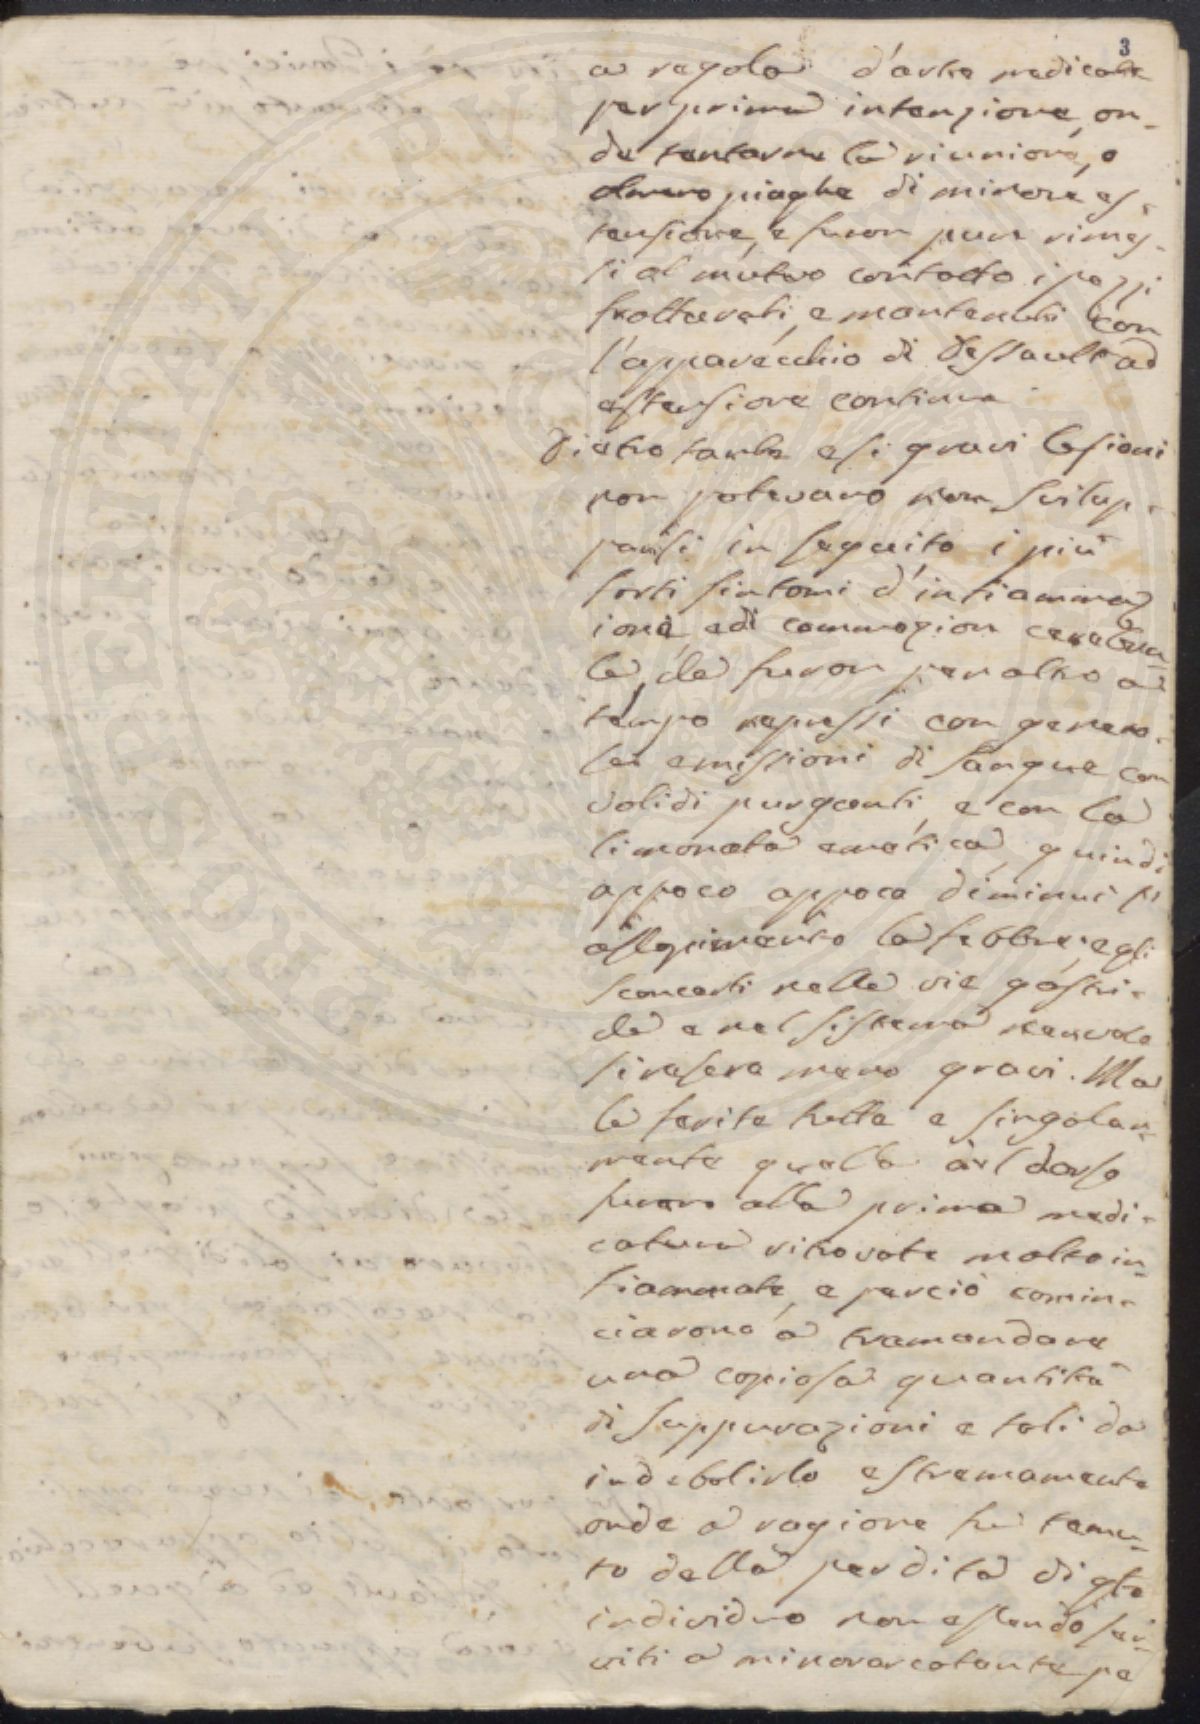 3
a regola d'arte medicate
per prima intenzione, on-
de tentarne la riunione, o
piaghe di minore es-
tensione, e furon pure rimes-
si al mutuo contatto i pezzi
fratturati, e mantenuti con
l'apparecchio di Dessault ad
estensione continua
Dietro tante e si gravi lesioni
non potevano non svilup-
parsi in seguito i più
forti sintomi d'infiammaz
ione, e di commozion cerebra-
le, che furon per altro a
tempo repressi con genero-
se emissioni di sangue con
validi purganti, e con la
limonata emetica, quindi
appoco appoco diminuì si
la febbre, e gli
sconcerti nelle vie gastri-
che e nel sistema nervoso
si resero meno gravi. Ma
le ferite tutte e singolar-
mente quella del dorso
furono alla prima medi-
catura ritrovate molto in-
fiammate, e perciò comin-
ciarono a tramandare
una copiosa quantità
di suppurazioni e tali da
indebolirlo estremamente
onde a ragione fu temu-
to della perdita di qto
individuo non essendo ser-
viti a minorar cotante pe
PVBLICI PROSPERITATI